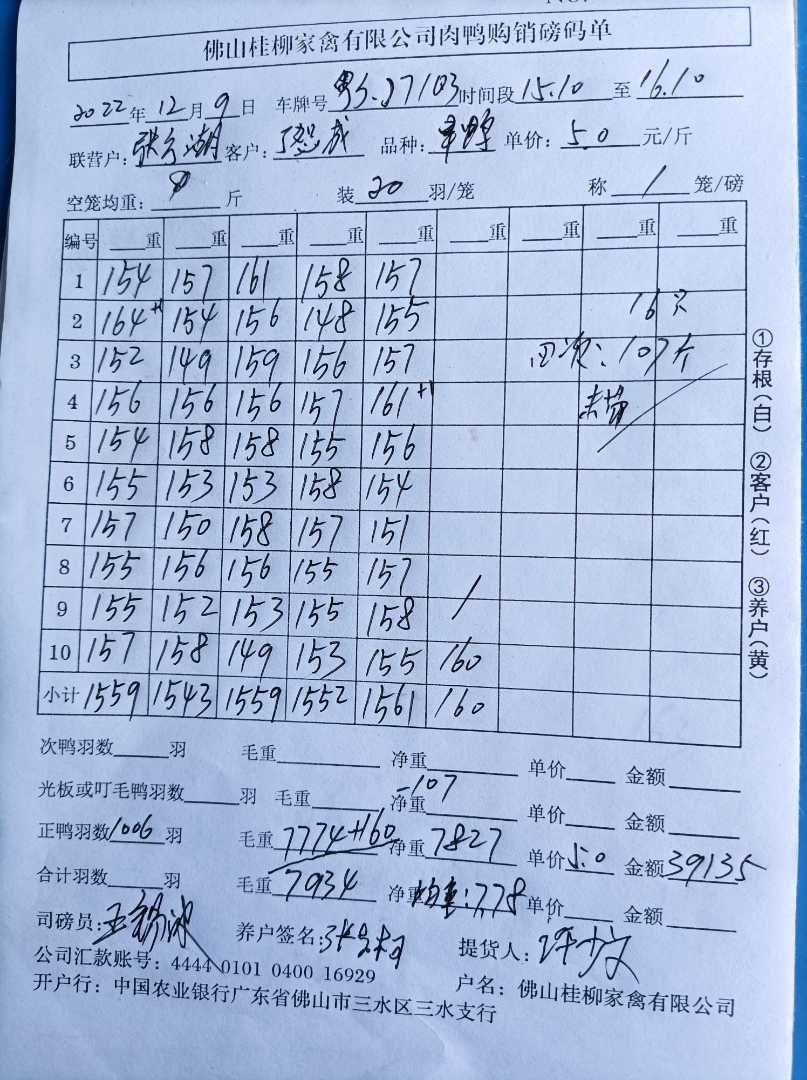 佛山桂柳家禽有限公司肉鸭购销磅码单
2022年12月9日 车牌号 27103 时间段15.10至16.10
联营户: 客户: 成 品种: 单价: 5.0 元/斤
空笼均重: 斤 装20羽/笼 称1笼/磅
编号 重 重 重 重 重 重 重 重 重
1 154 157 161 158 157
2 164+1 154 156 148 155 16只
3 152 149 159 156 157 107斤
4 156 156 156 157 161+1
5 154 158 158 155 156
6 155 153 153 158 154
7 157 150 158 157 151
8 155 156 156 155 157
9 155 152 153 155 158 /
10 157 158 149 153 155 160
小计 1559 1543 1559 1552 1561 160
①存根(白) ②客户(红) ③养户(黄)
次鸭羽数 羽 毛重 净重 单价 金额
光板或叮毛鸭羽数 羽 毛重 净重 -107 单价 金额
正鸭羽数1006羽 毛重7774+160 净重7827 单价5.0 金额39135
合计羽数 羽 毛重7934 净重 均重:7.78 单价 金额
司磅员: 养户签名: 提货人:
公司汇款账号: 4444 0101 0400 16929 户名: 佛山桂柳家禽有限公司
开户行: 中国农业银行广东省佛山市三水区三水支行